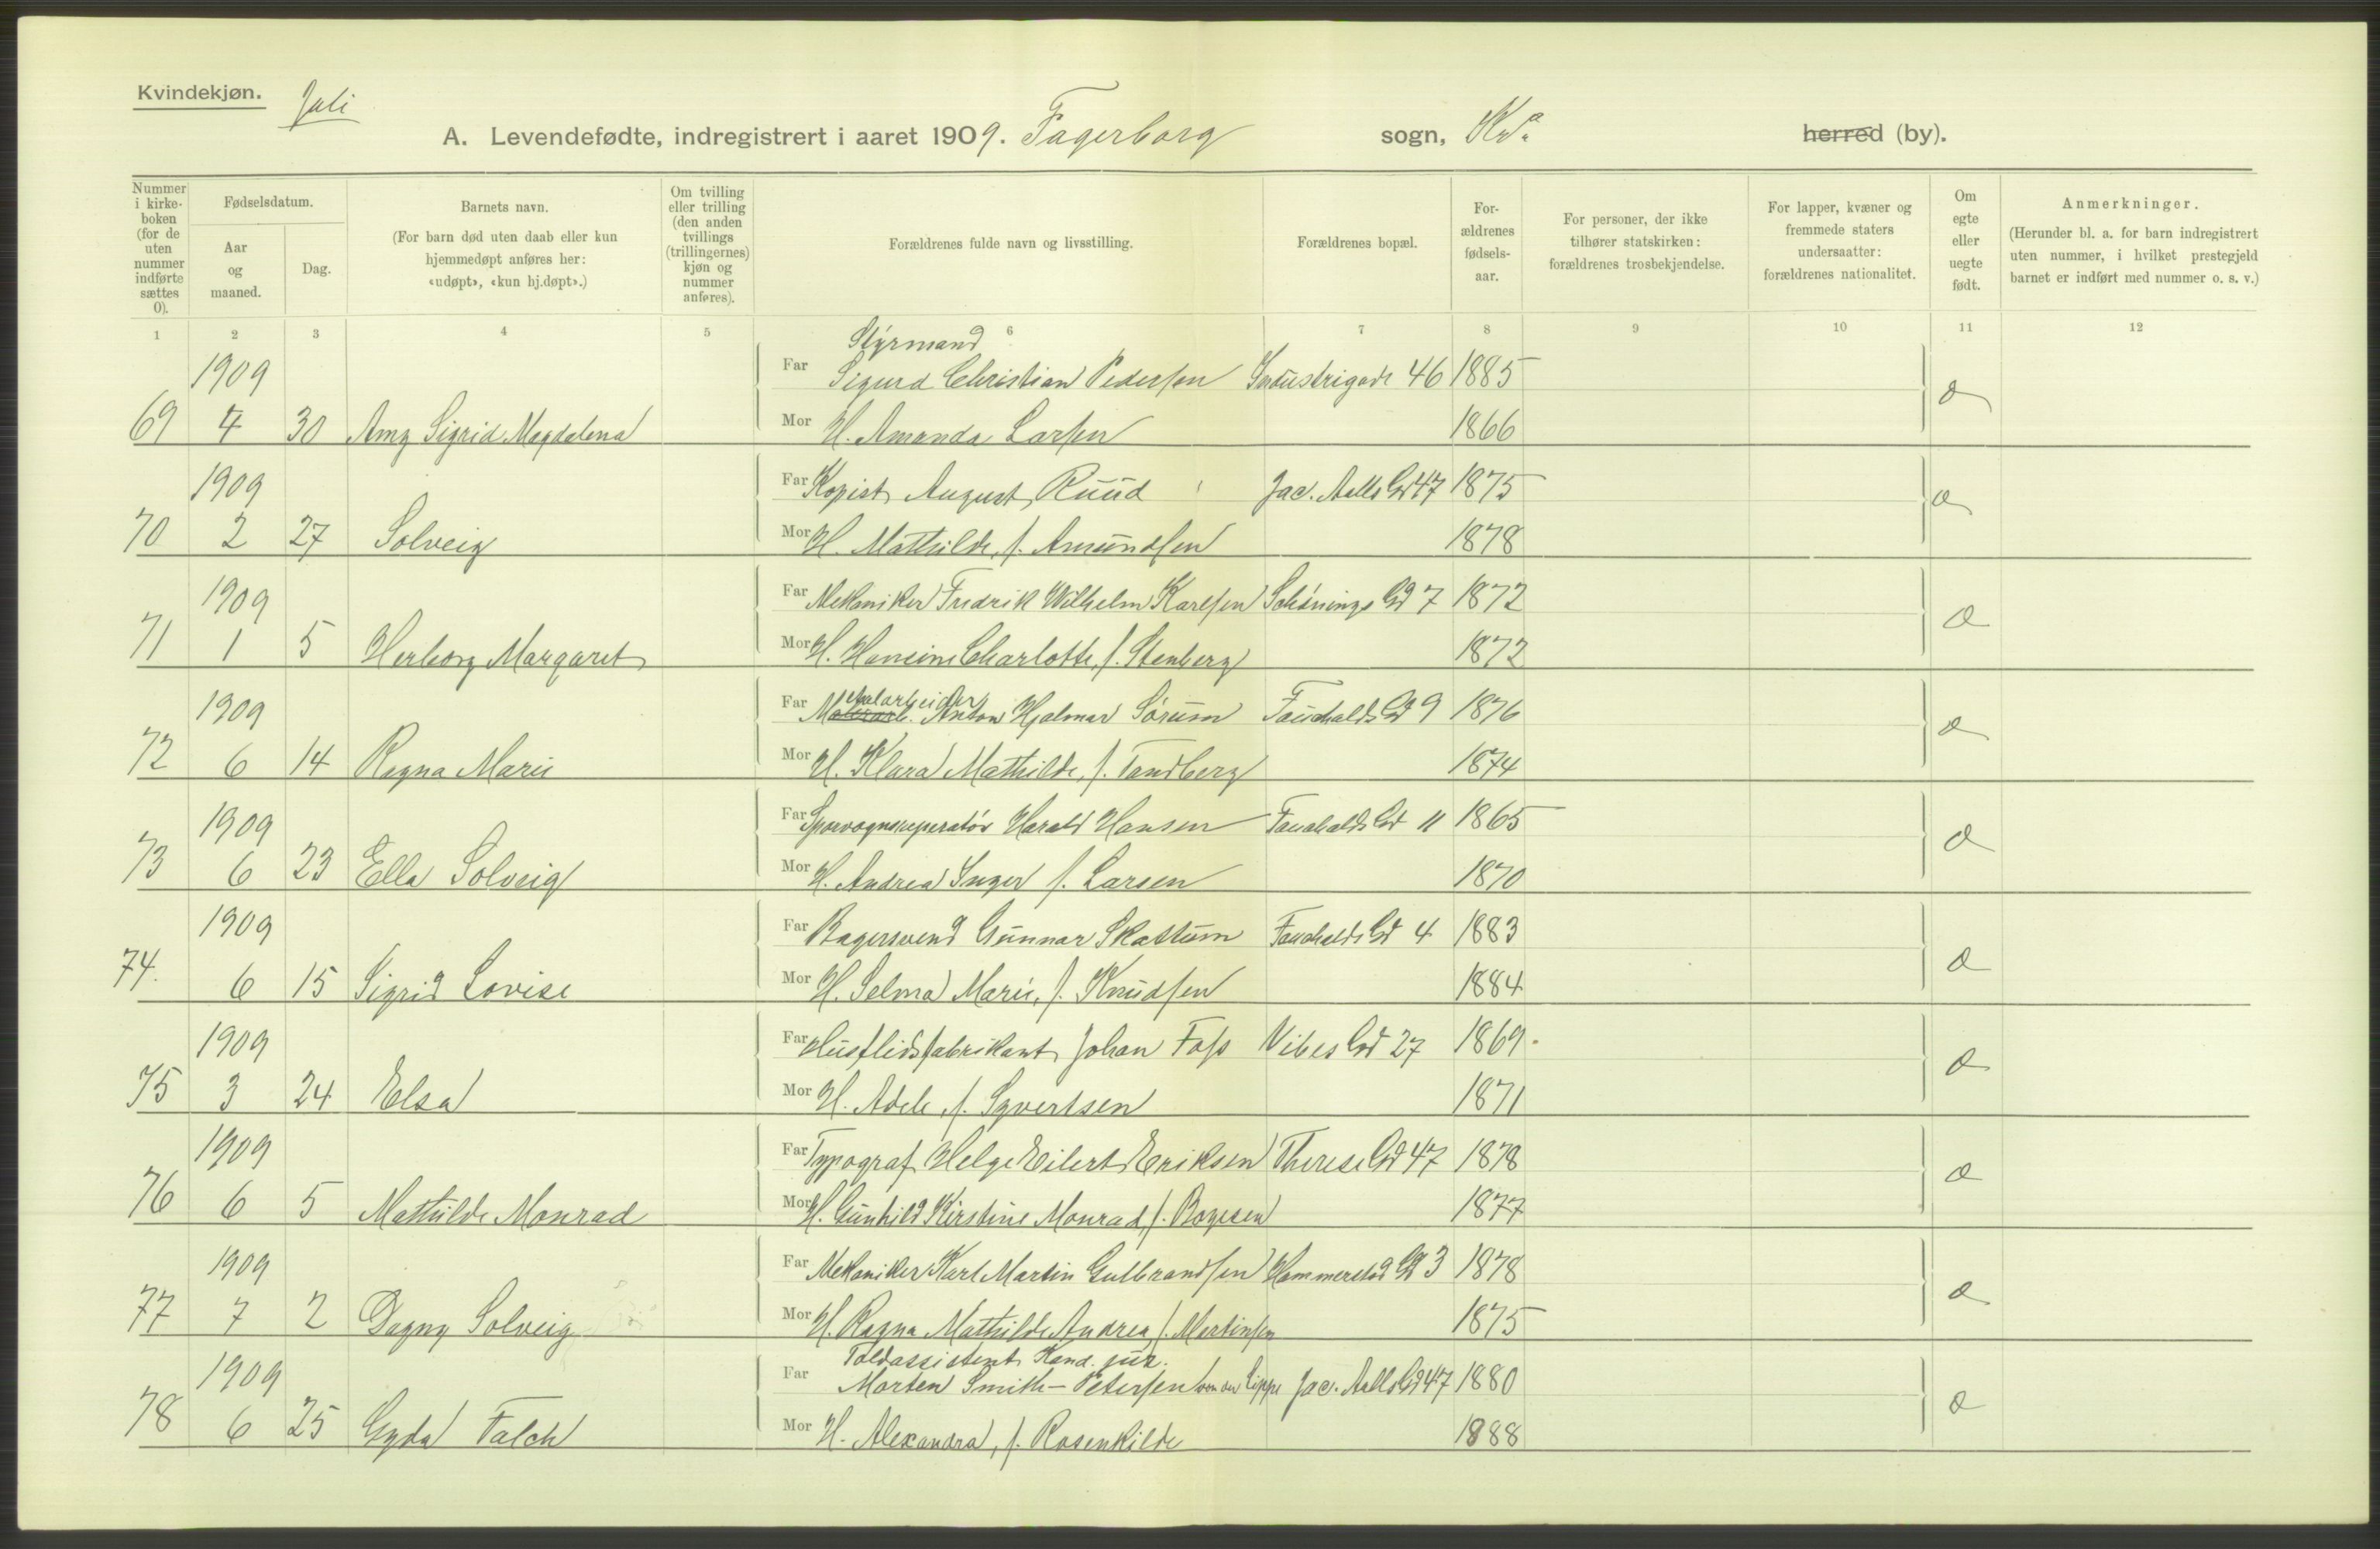 Kvindekjøn.
Juli
A. Levendefødte, indregistrert i aaret 1909. Fagerborg sogn, Kra herred (by).
Nummer i kirke-boken (for de uten nummer indførte sættes 0).
Fødselsdatum.
Aar og maaned.
Dag.
Barnets navn.
(For barn død uten daab eller kun hjemmedøpt anføres her: «udøpt», «kun hj.døpt».)
Om tvilling eller trilling (den anden tvillings (trillingernes) kjøn og nummer anføres).
Forældrenes fulde navn og livsstilling.
Forældrenes bopæl.
For-ældrenes fødsels-aar.
For personer, der ikke tilhører statskirken: forældrenes trosbekjendelse.
For lapper, kvæner og fremmede staters undersaatter: forældrenes nationalitet.
Om egte eller uegte født.
Anmerkninger.
(Herunder bl. a. for barn indregistrert uten nummer, i hvilket prestegjeld barnet er indført med nummer o. s. v.)
1 2 3 4 5 6 7 8 9 10 11 12
Styrmand
1909 Far Sigurd Christian Pedersen Industrigade 46 1885
69 4 30 Amy Sigrid Magdalena Mor H. Amanda Larsen 1866
1909 Far Kopist August Ruud Jac. Aalls Gd 47 1875
70 2 27 Solveig Mor H. Mathilde, f. Amundsen 1878
1909 Far Mekaniker Fredrik Wilhelm Karlsen Schønings Gd 7 1872
71 1 5 Herborg Margaret Mor H. Hansine Charlotte, f. Stenberg 1872
1909 Far Metalarbeider Anton Hjalmar Sørum Fauchalds Gd 9 1876
72 6 14 Ragna Marie Mor H. Klara Mathilde, f. Tandberg 1874
1909 Far Sporvognsreperatør Harald Hansen Fauchalds Gd 11 1865
73 6 23 Ella Solveig Mor H. Andrea Inger f. Larsen 1870
1909 Far Bagersvend Gunnar Skattum Fauchalds Gd 4 1883
74. 6 15 Sigrid Lovise Mor H. Selma Marie, f. Knudsen 1884
1909 Far Husflidsfabrikant Johan Foss Vibes Gd 27 1869
75 3 24 Elsa Mor H. Adele, f. Syvertsen 1871
1909 Far Typograf Helge Eilert Eriksen Therese Gd 47 1878
76 6 5 Mathilde Monrad Mor H. Gunhild Kirstine Monrad, f. Boyesen 1877
1909 Far Mekaniker Karl Martin Gulbrandsen Hammerstad Gd 3 1878
77 7 2 Dagny Solveig Mor H. Ragna Mathilde Andrea, f. Martinsen 1875
Toldassistent, Kand. jur.
1909 Far Morten Smith-Petersen von der Lippe Jac. Aalls Gd 47 1880
78 6 25 Gyda Falch Mor H. Alexandra, f. Rosenkilde 1888